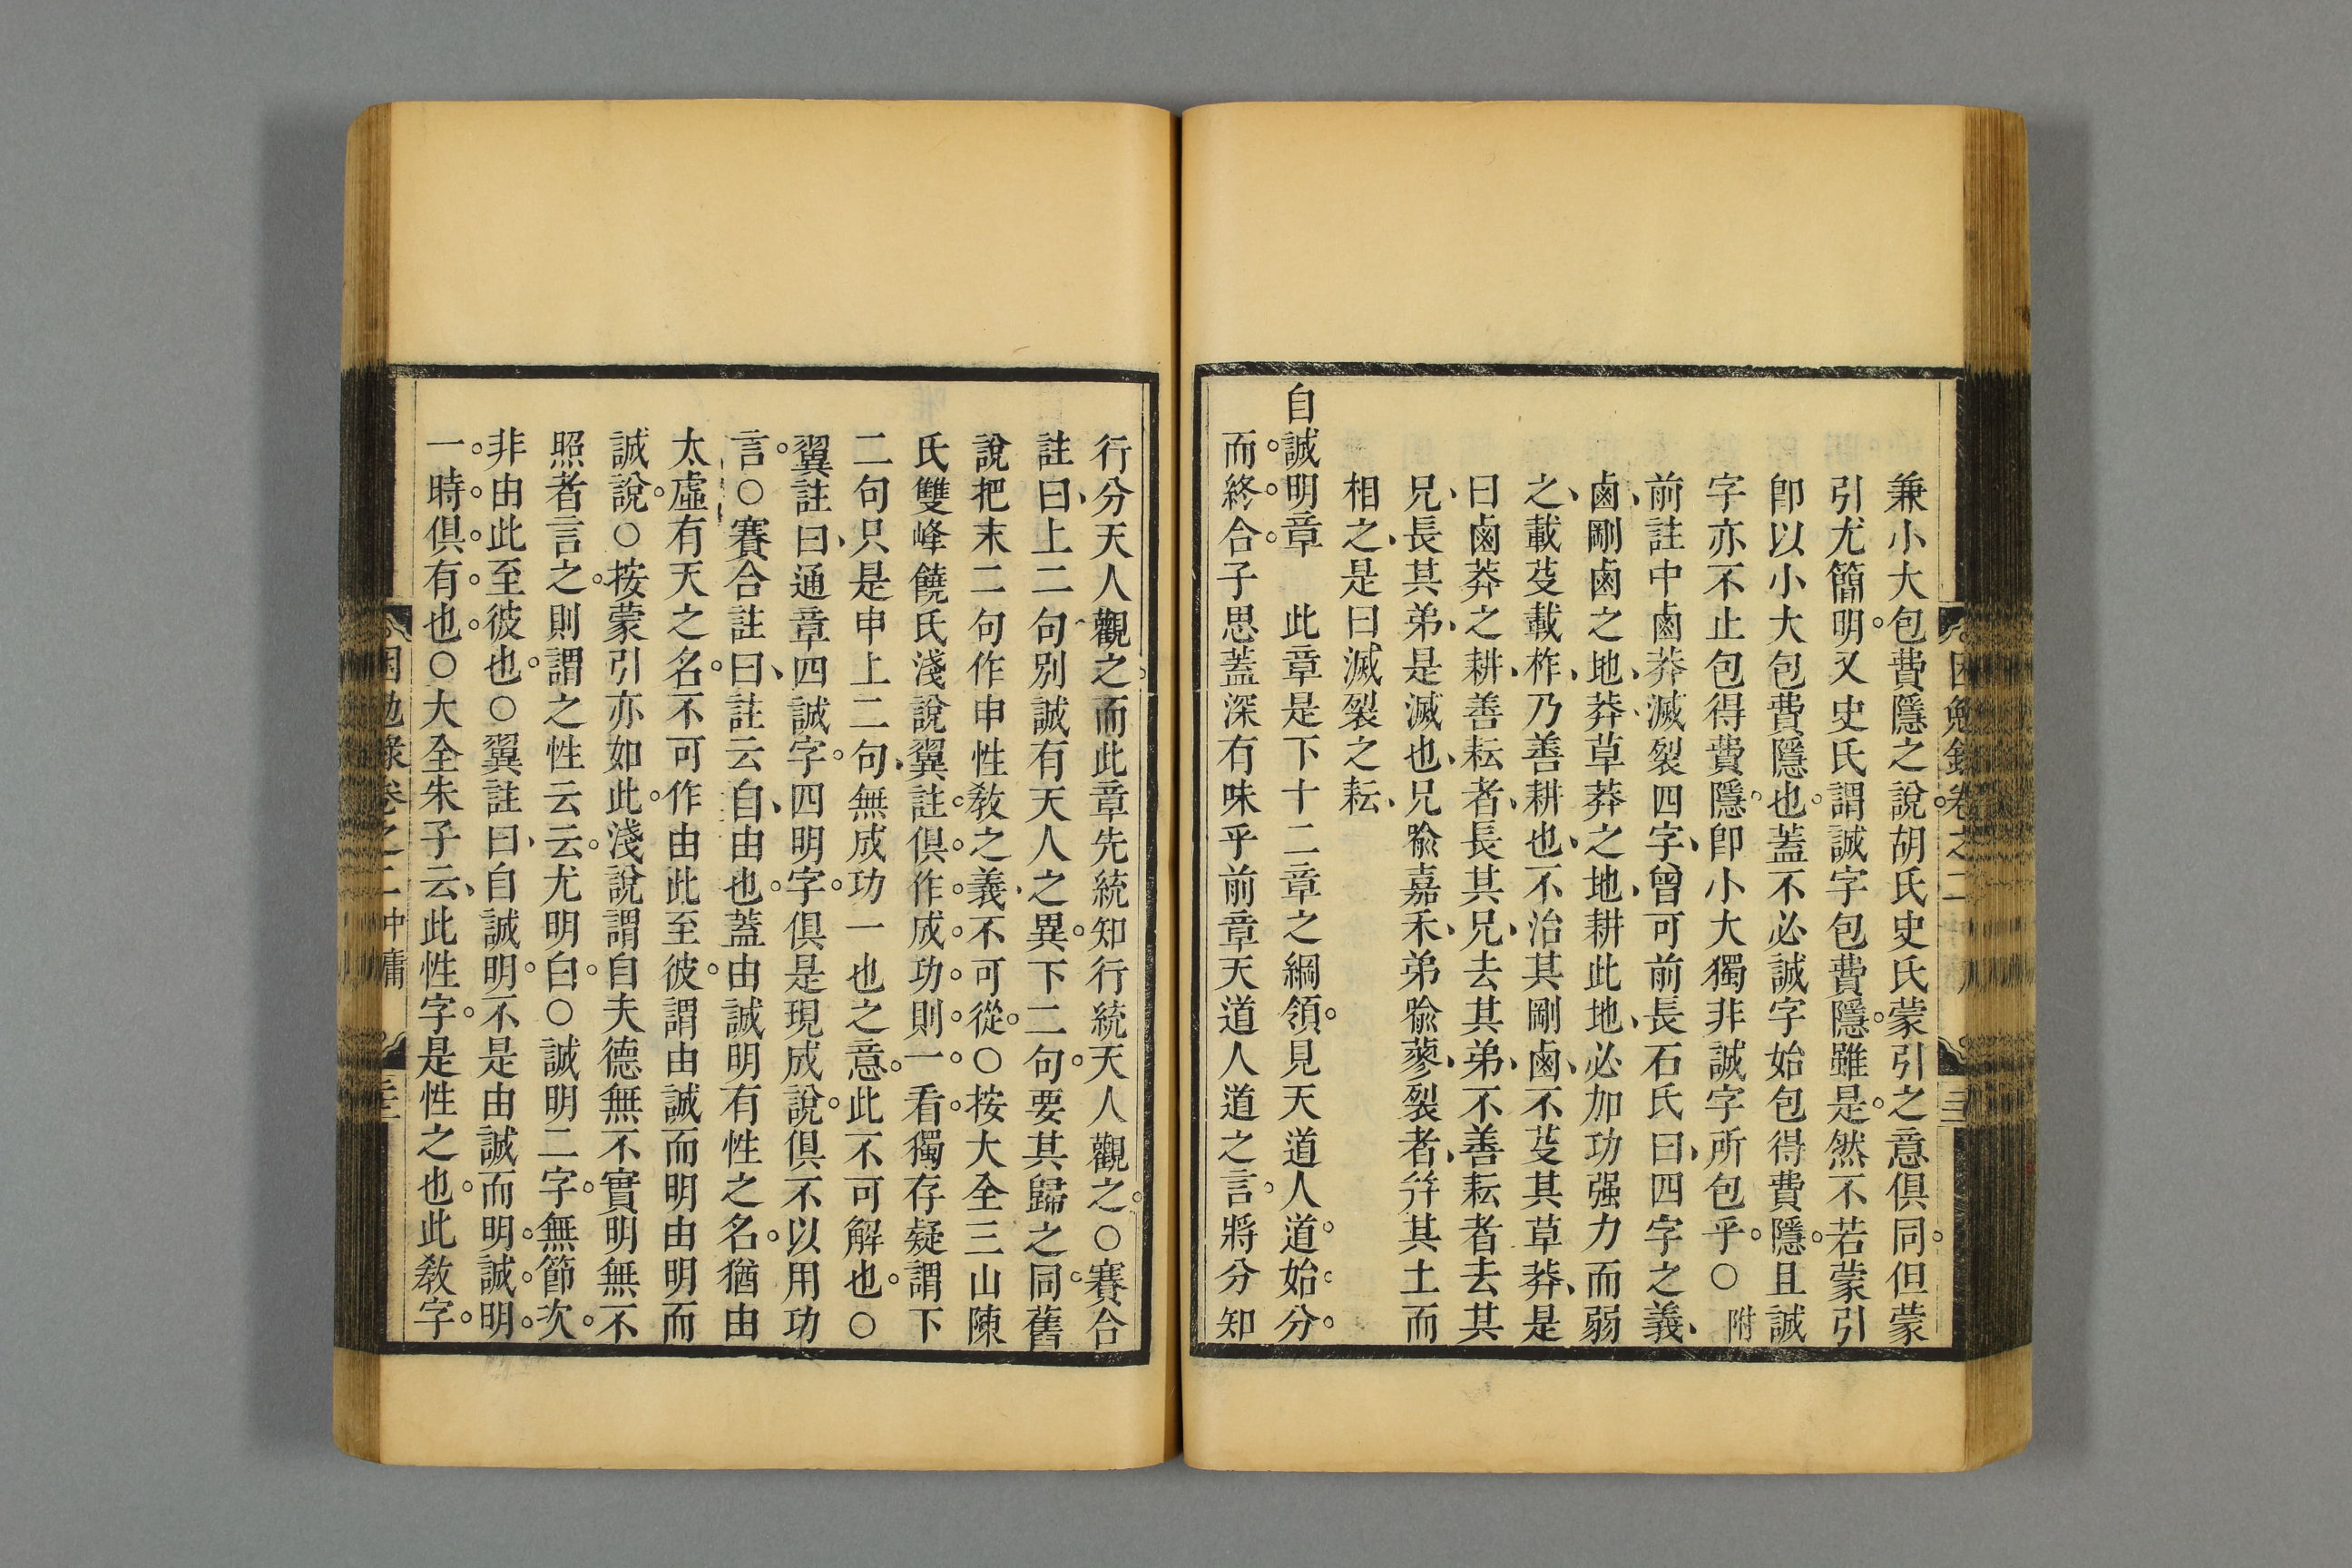 兼小大包費隱之說胡氏史氏蒙引之意俱同但蒙
引尤簡明又史氏謂誠字包費隱雖是然不若蒙引
卽以小大包費隱也蓋不必誠字始包得費隱且誠
字亦不止包得費隱卽小大獨非誠字所包乎○附
前註中鹵莽滅裂四字曾可前長石氏曰四字之義
鹵剛鹵之地莽草莽之地耕此地必加功强力而弱
之載芟載柞乃善耕也不治其剛鹵不芟其草莽是
曰鹵莽之耕善耘者長其兄去其弟不善耘者去其
兄長其弟是滅也兄喩嘉禾弟喩蓼裂者幷其土而
相之是曰滅裂之耘
自誠明章 此章是下十二章之綱領見天道人道始分
而終合子思蓋深有味乎前章天道人道之言將分知
困勉錄卷之二
行分天人觀之而此章先統知行統天人觀之○賽合
註曰上二句別誠有天人之異下二句要其歸之同舊
說把末二句作申性敎之義不可從○按大全三山陳
氏雙峰饒氏淺說翼註俱作成功則一看獨存疑謂下
二句只是申上二句無成功一也之意此不可解也○
翼註曰通章四誠字四明字俱是現成說俱不以用功
言○賽合註曰註云自由也蓋由誠明有性之名猶由
太虛有天之名不可作由此至彼謂由誠而明由明而
誠說○按蒙引亦如此淺說謂自夫德無不實明無不
照者言之則謂之性云云尤明白○誠明二字無節次
非由此至彼也○翼註曰自誠明不是由誠而明誠明
一時俱有也○大全朱子云此性字是性之也此敎字
困勉錄卷之二 中庸